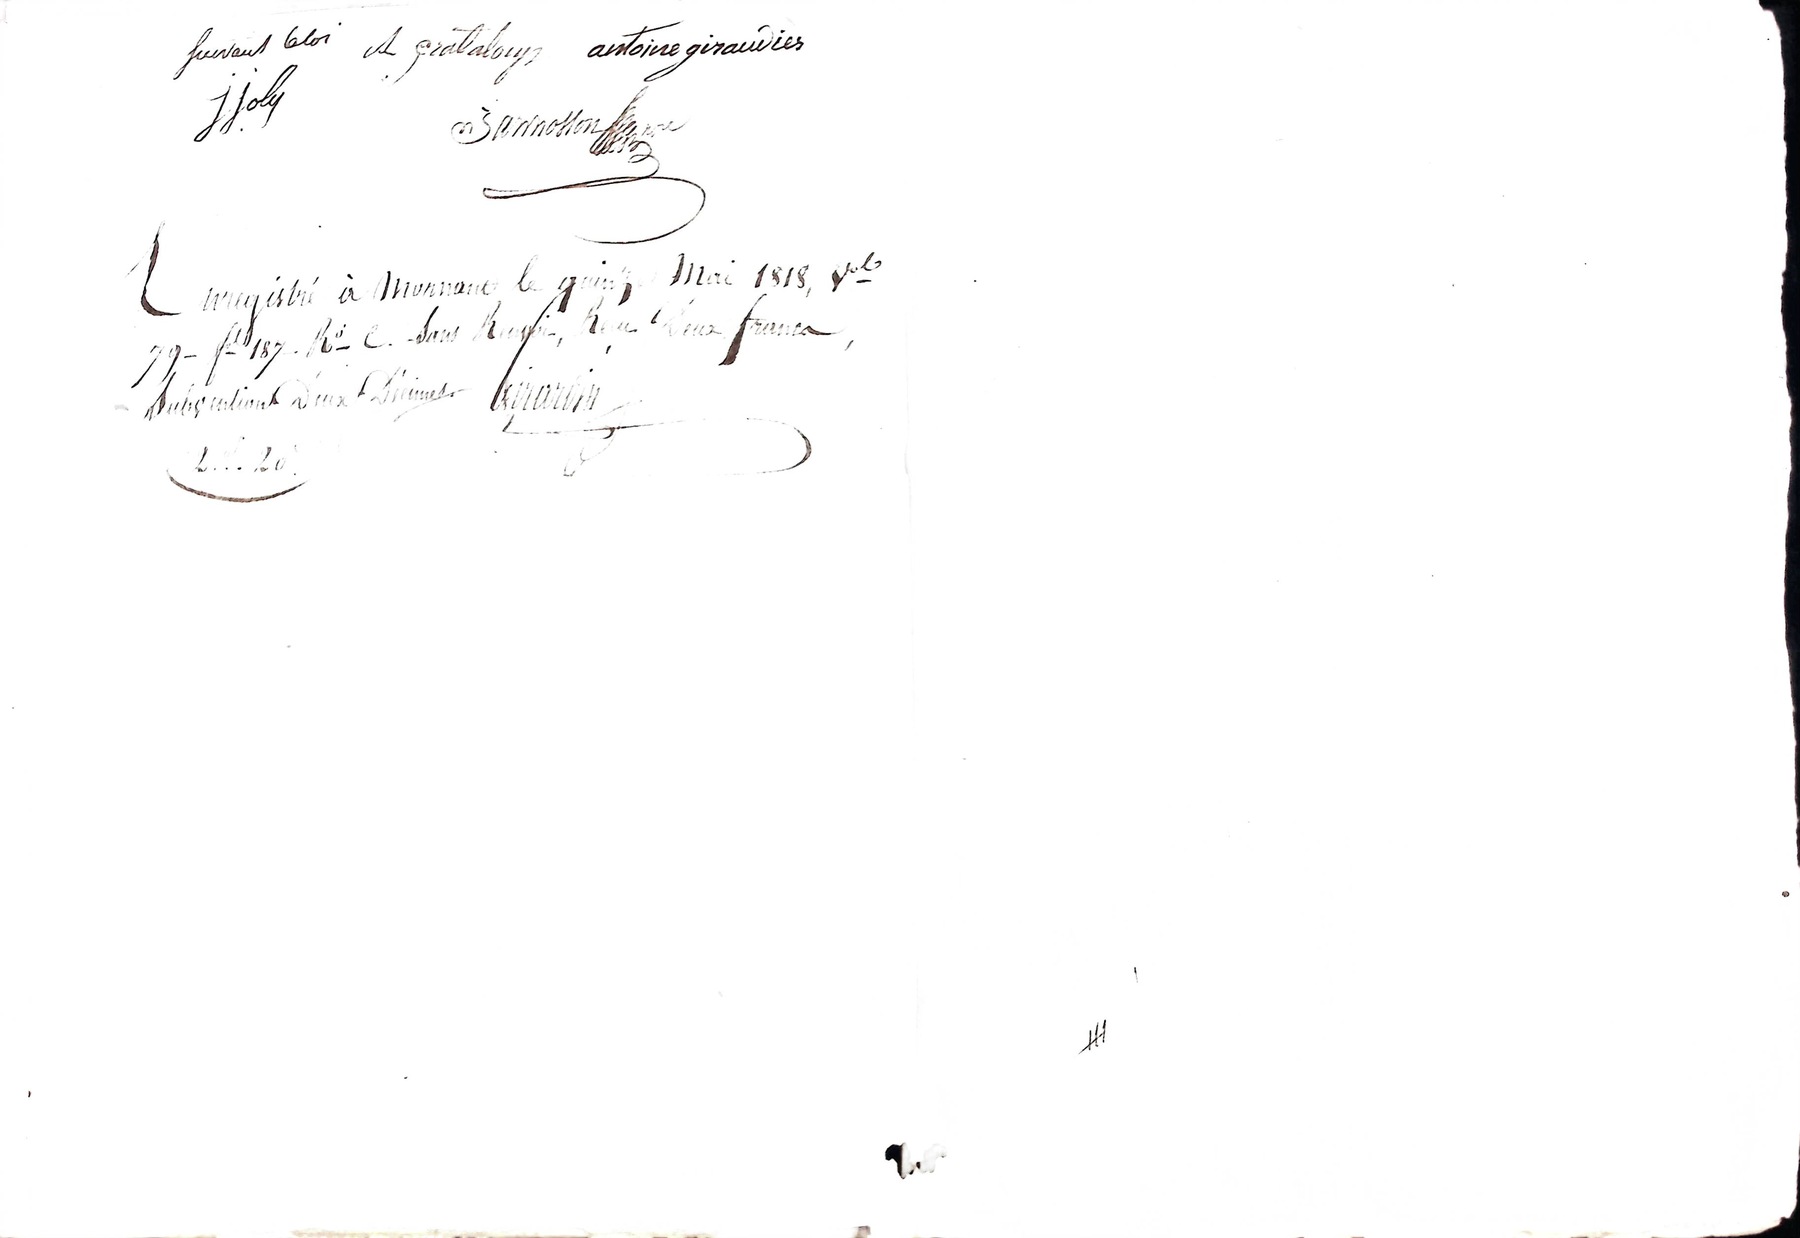 suivant la loi et gratalouys antoine giraudier
j joly
Enregistré à Mornant le quinze Mai 1818, vol.
79 - f° 187 R° C. Sans Renvoi, Reçu deux francs,
Subvention Deux Décimes Girardin
2 f. 20